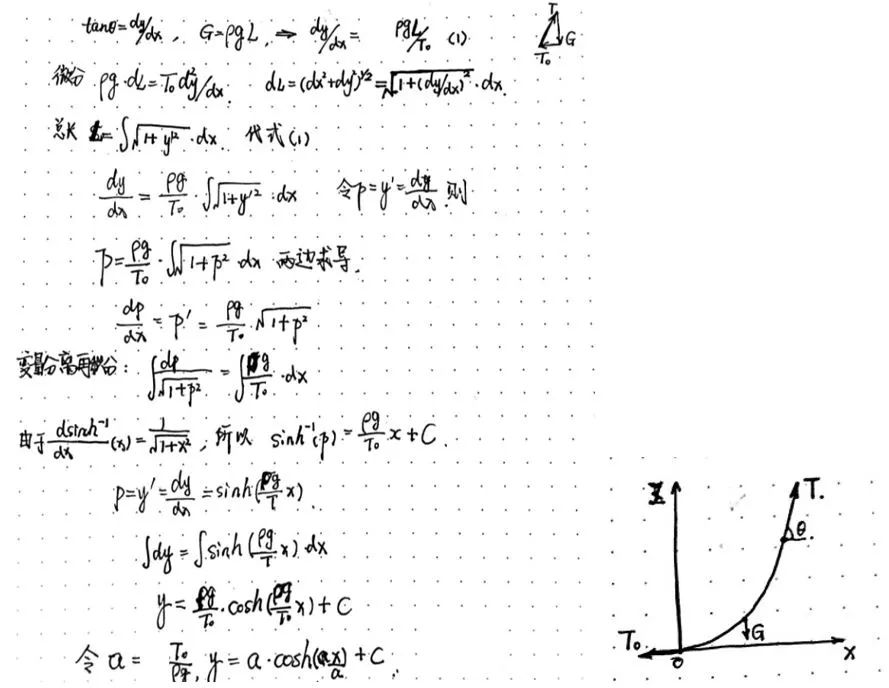 tanθ=dy/dx, G=ρgL, ⇒ dy/dx= ρgL/T₀ (1)
T G T₀
微分 ρg·dL=T₀d²y/dx. dL=(dx²+dy²)^1/2=√(1+(dy/dx)²)·dx.
总长 L=∫√(1+y'²)·dx. 代式(1)
dy/dx = ρg/T₀ · ∫√(1+y'²)·dx 令p=y'=dy/dx. 则
p=ρg/T₀·∫√(1+p²)·dx 两边求导.
dp/dx = p' = ρg/T₀·√(1+p²)
变量分离再积分: ∫dp/√(1+p²) = ∫ρg/T₀·dx
由于 dsinh⁻¹/dx (x)=1/√(1+x²), 所以 sinh⁻¹(p)=ρg/T₀ x+C.
p=y'=dy/dx=sinh(ρg/T x)
∫dy=∫sinh(ρg/T x)·dx
y=ρg/T₀·cosh(ρg/T₀ x)+C
令 a= T₀/ρg, y=a·cosh(x/a)+C.
T.
θ
G
T₀.
0
x